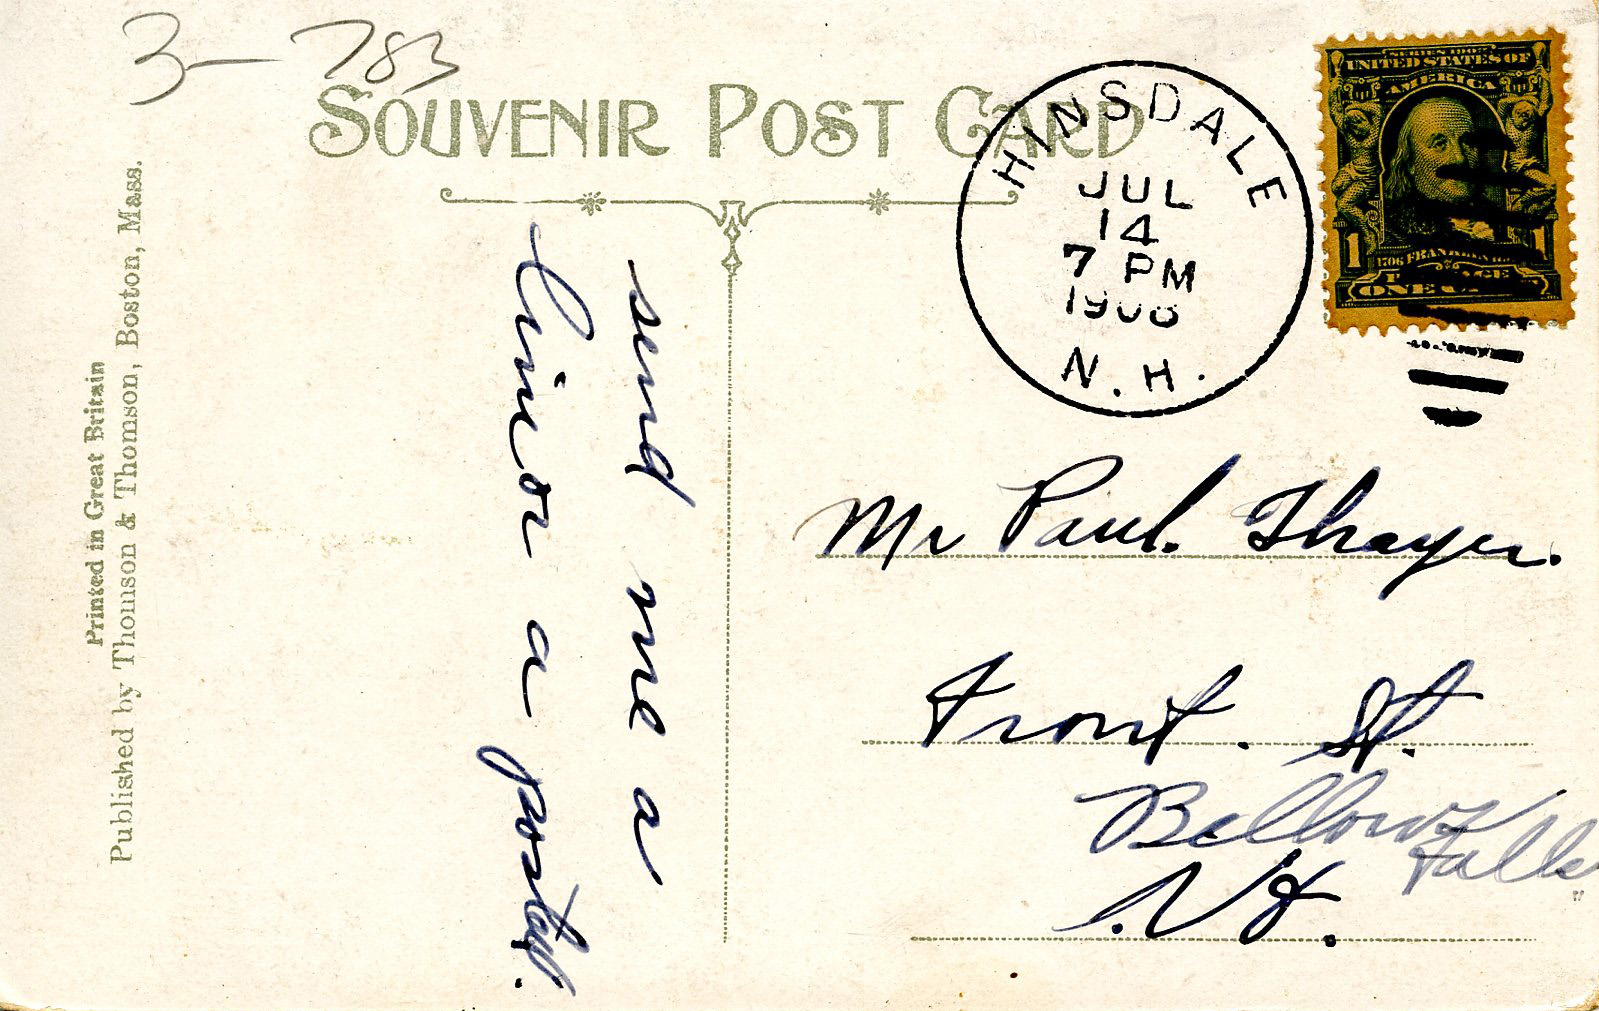 3— 783
SOUVENIR POST CARD
HINSDALE
JUL
14
7 PM
1908
N.H.
SERIES 1902
UNITED STATES OF
AMERICA
1 1
1706 FRANKLIN
ONE
send me a
a postal.
Mr Paul. Thayer.
Front. St.
Bellows
Falls
Vt.
Printed in Great Britain
Published by Thomson & Thomson, Boston, Mass.